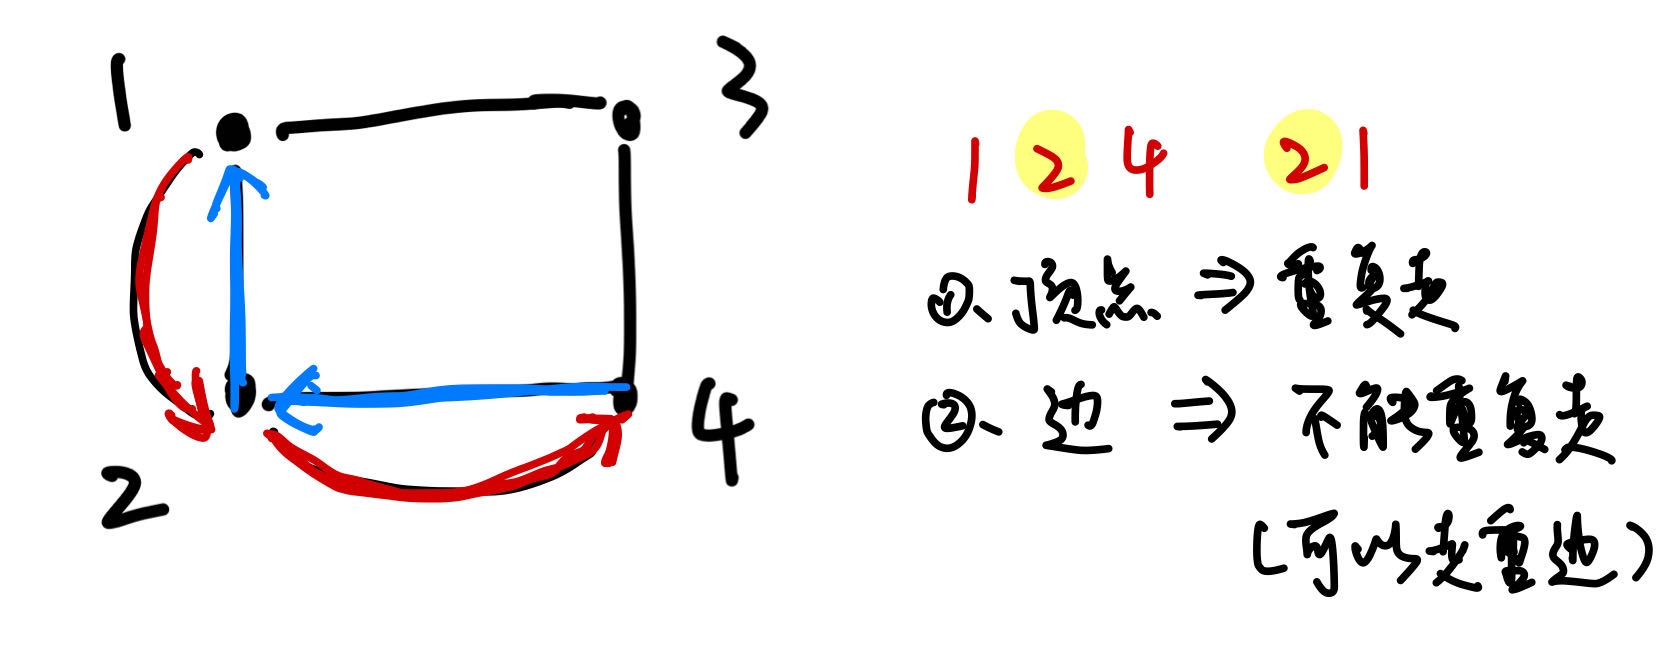 1 3
1 2 4 2 1
①、顶点 ⇒ 重复走
②、边 ⇒ 不能重复走
2 4
(可以走重边)